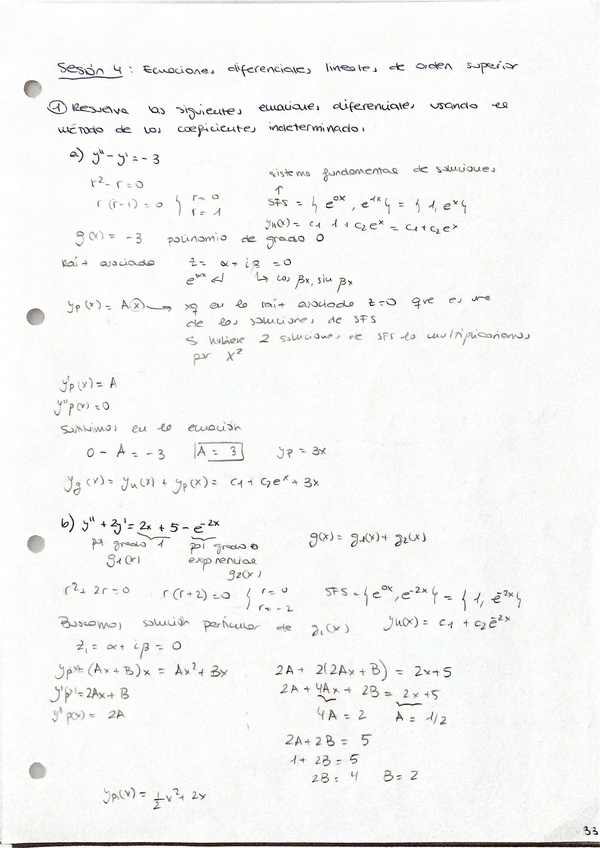 Sesión 4: Ecuaciones diferenciales lineales de orden superior
① Resuelva las siguientes ecuaciones diferenciales usando el
método de los coeficientes indeterminados
a) y'' - y' = -3
sistema fundamental de soluciones
↑
r² - r = 0
r (r-1) = 0 { r = 0
r = 1
SFS = { e^{0x}, e^{1x} } = { 1, e^x }
y_h(x) = c₁ · 1 + c₂e^x = c₁ + c₂e^x
g(x) = -3 polinomio de grado 0
Raíz asociada z = α + iβ = 0
e^{αx} ↵ ↳ cos βx, sin βx
y_p(x) = A(x) → xq en la raíz asociada z=0 que es una
de las soluciones de SFS
Si hubiese 2 soluciones de SFS lo multiplicaríamos
por x²
y'p(x) = A
y''p(x) = 0
Sustituimos en la ecuación
0 - A = -3 A = 3 y_p = 3x
y_g(x) = y_h(x) + y_p(x) = c₁ + c₂e^x + 3x
b) y'' + 2y' = 2x + 5 - e^{-2x}
pol grado 1 pol grado 0
g₁(x) exponencial
g₂(x)
g(x) = g₁(x) + g₂(x)
r² + 2r = 0 r(r+2) = 0 { r = 0
r = -2
SFS = { e^{0x}, e^{-2x} } = { 1, e^{-2x} }
Buscamos solución particular de g₁(x) y_h(x) = c₁ + c₂e^{-2x}
z₁ = α + iβ = 0
y_{p1} = (Ax + B)x = Ax² + Bx
y'p1 = 2Ax + B
y''p(x) = 2A
2A + 2(2Ax + B) = 2x + 5
2A + 4Ax + 2B = 2x + 5
4A = 2 A = 1/2
2A + 2B = 5
1 + 2B = 5
2B = 4 B = 2
y_{p1}(x) = 1/2 x² + 2x
33